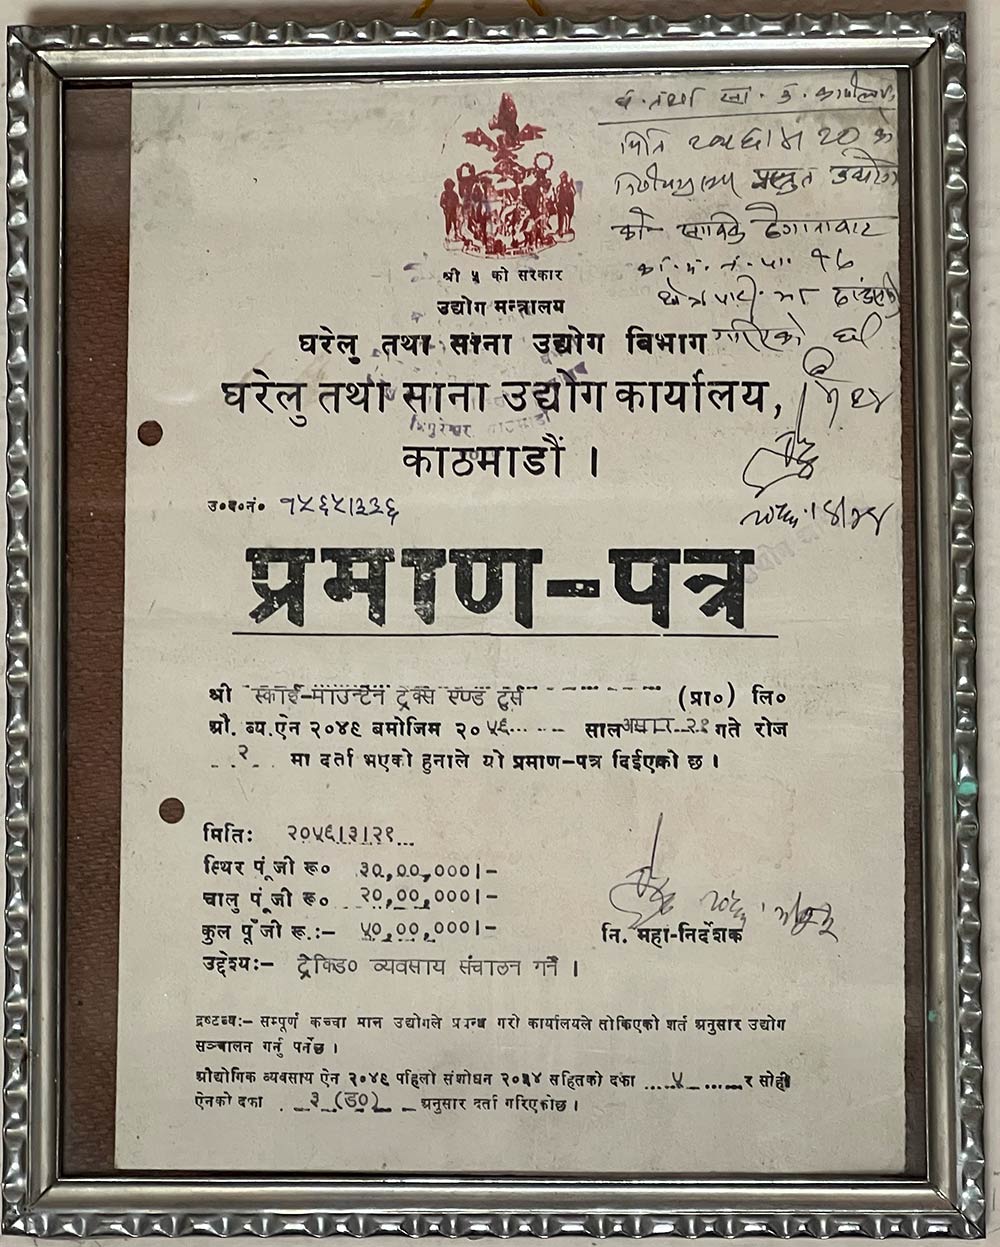 घ. तथा सा. उ. कार्यालय
मिति
प्रस्तुत उद्योग
को साविक ठेगानाबाट
का. म. न. पा. १७
क्षेत्रपाटी मा
गरिएको छ।
श्री ५ को सरकार
उद्योग मन्त्रालय
घरेलु तथा साना उद्योग विभाग
घरेलु तथा साना उद्योग कार्यालय,
काठमाडौं ।
त्रिपुरेश्वर काठमाडौं
उ०द०नं० १५६५।३३६
प्रमाण-पत्र
श्री स्काई-माउन्टेन ट्रेक्स एण्ड टुर्स (प्रा०) लि०
औ. ब्य. ऐन २०४९ बमोजिम २०५६ साल असार २१ गते रोज
२ मा दर्ता भएको हुनाले यो प्रमाण-पत्र दिईएको छ ।
मिति: २०५६।३।२१
स्थिर पूंजी रू० ३०,००,०००।-
चालु पूंजी रू० २०,००,०००।-
कुल पूँजी रू.:- ५०,००,०००।-
नि. महा-निर्देशक
उद्देश्य:- ट्रेकिङ० व्यवसाय संचालन गर्ने ।
द्रष्टव्य:- सम्पूर्ण कच्चा माल उद्योगले प्रबन्ध गरी कार्यालयले तोकिएको शर्त अनुसार उद्योग
सञ्चालन गर्नु पर्नेछ ।
औद्योगिक व्यवसाय ऐन २०४९ पहिलो संशोधन २०५४ सहितको दफा ५ र सोही
ऐनको दफा ३ (ड०) अनुसार दर्ता गरिएकोछ ।